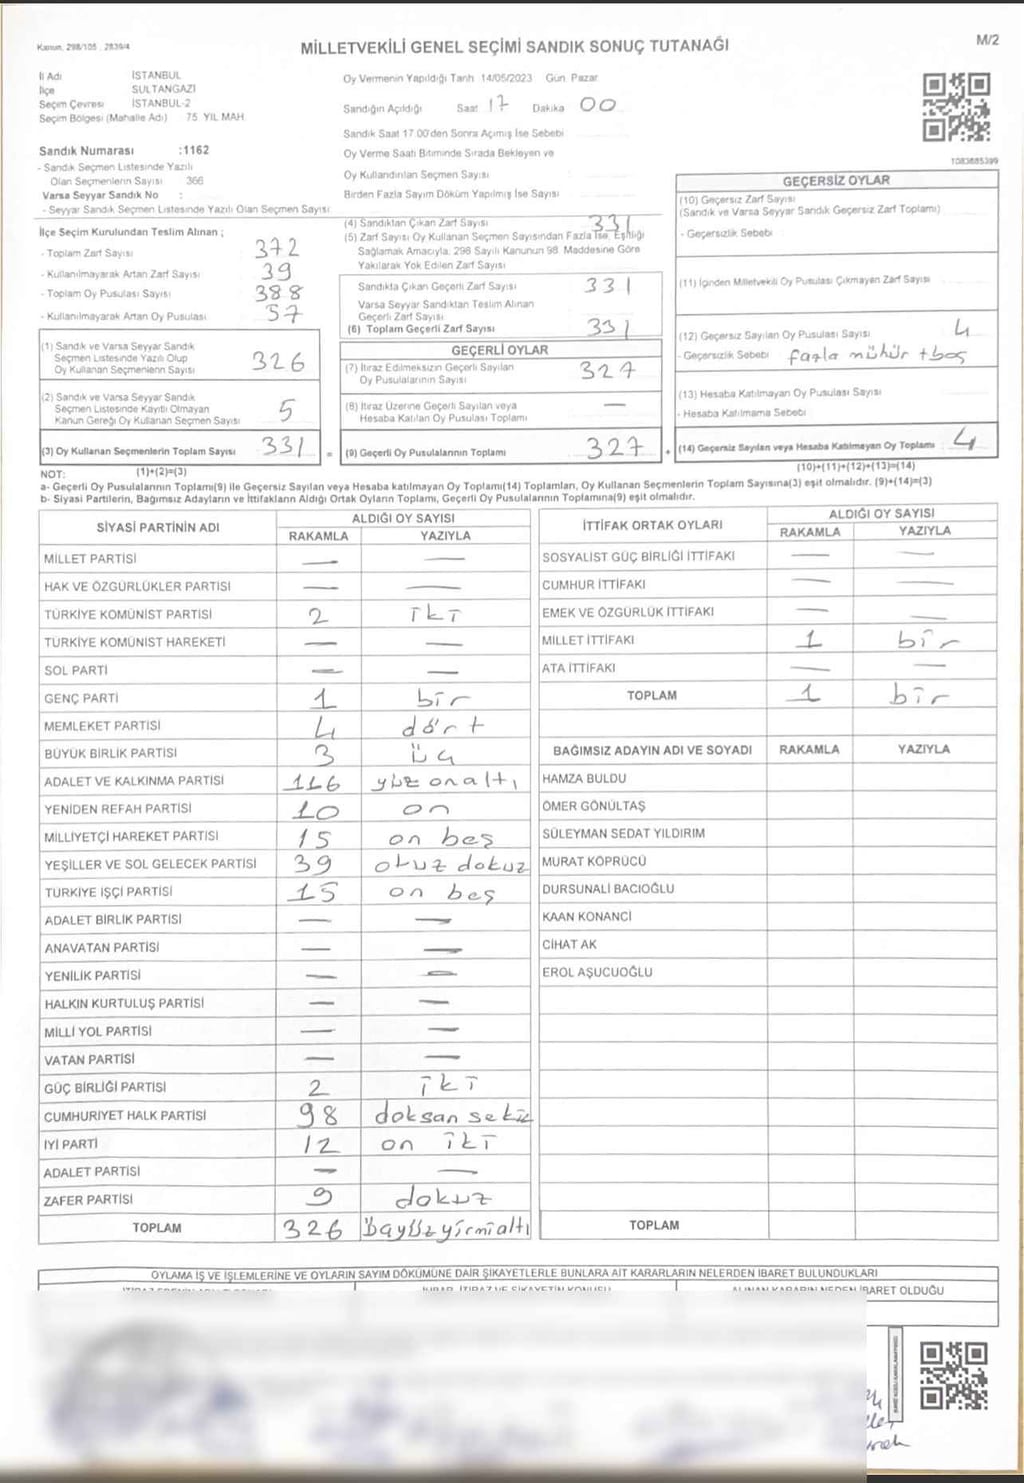 Kanun, 298/105 , 2839/4
MİLLETVEKİLİ GENEL SEÇİMİ SANDIK SONUÇ TUTANAĞI
M/2
İl Adı İSTANBUL
İlçe SULTANGAZİ
Seçim Çevresi İSTANBUL-2
Seçim Bölgesi (Mahalle Adı) 75. YIL MAH.
Sandık Numarası :1162
- Sandık Seçmen Listesinde Yazılı
Olan Seçmenlerin Sayısı 366
Varsa Seyyar Sandık No :
- Seyyar Sandık Seçmen Listesinde Yazılı Olan Seçmen Sayısı
Oy Vermenin Yapıldığı Tarih 14/05/2023 Gün Pazar
Sandığın Açıldığı Saat 17 Dakika 00
Sandık Saat 17.00'den Sonra Açımış İse Sebebi
Oy Verme Saati Bitiminde Sırada Bekleyen ve
Oy Kullandırılan Seçmen Sayısı
Birden Fazla Sayım Döküm Yapılmış İse Sayısı
1083685399
İlçe Seçim Kurulundan Teslim Alınan ;
- Toplam Zarf Sayısı 372
- Kullanılmayarak Artan Zarf Sayısı 39
- Toplam Oy Pusulası Sayısı 388
- Kullanılmayarak Artan Oy Pusulası 57
(1) Sandık ve Varsa Seyyar Sandık
Seçmen Listesinde Yazılı Olup
Oy Kullanan Seçmenlerin Sayısı 326
(2) Sandık ve Varsa Seyyar Sandık
Seçmen Listesinde Kayıtlı Olmayan
Kanun Gereği Oy Kullanan Seçmen Sayısı 5
(3) Oy Kullanan Seçmenlerin Toplam Sayısı 331 =
(1)+(2)=(3)
(4) Sandıktan Çıkan Zarf Sayısı 331
(5) Zarf Sayısı Oy Kullanan Seçmen Sayısından Fazla İse, Eşitliği
Sağlamak Amacıyla, 298 Sayılı Kanunun 98. Maddesine Göre
Yakılarak Yok Edilen Zarf Sayısı
Sandıkta Çıkan Geçerli Zarf Sayısı 331
Varsa Seyyar Sandıktan Teslim Alınan
Geçerli Zarf Sayısı
(6) Toplam Geçerli Zarf Sayısı 331
GEÇERLİ OYLAR
(7) İtiraz Edilmeksizin Geçerli Sayılan
Oy Pusulalarının Sayısı 327
(8) İtiraz Üzerine Geçerli Sayılan veya
Hesaba Katılan Oy Pusulası Toplamı —
(9) Geçerli Oy Pusulalarının Toplamı 327 +
GEÇERSİZ OYLAR
(10) Geçersiz Zarf Sayısı
(Sandık ve Varsa Seyyar Sandık Geçersiz Zarf Toplamı)
- Geçersizlik Sebebi
(11) İçinden Milletvekili Oy Pusulası Çıkmayan Zarf Sayısı
(12) Geçersiz Sayılan Oy Pusulası Sayısı 4
- Geçersizlik Sebebi fazla mühür + boş
(13) Hesaba Katılmayan Oy Pusulası Sayısı
- Hesaba Katılmama Sebebi
(14) Geçersiz Sayılan veya Hesaba Katılmayan Oy Toplamı 4
(10)+(11)+(12)+(13)=(14)
NOT:
a- Geçerli Oy Pusulalarının Toplamı(9) ile Geçersiz Sayılan veya Hesaba katılmayan Oy Toplamı(14) Toplamları, Oy Kullanan Seçmenlerin Toplam Sayısına(3) eşit olmalıdır. (9)+(14)=(3)
b- Siyasi Partilerin, Bağımsız Adayların ve İttifakların Aldığı Ortak Oyların Toplamı, Geçerli Oy Pusulalarının Toplamına(9) eşit olmalıdır.
SİYASİ PARTİNİN ADI ALDIĞI OY SAYISI
RAKAMLA YAZIYLA
MİLLET PARTİSİ — —
HAK VE ÖZGÜRLÜKLER PARTİSİ — —
TÜRKİYE KOMÜNİST PARTİSİ 2 iki
TÜRKİYE KOMÜNİST HAREKETİ — —
SOL PARTİ — —
GENÇ PARTİ 1 bir
MEMLEKET PARTİSİ 4 dört
BÜYÜK BİRLİK PARTİSİ 3 üç
ADALET VE KALKINMA PARTİSİ 116 yüz onaltı
YENİDEN REFAH PARTİSİ 10 on
MİLLİYETÇİ HAREKET PARTİSİ 15 on beş
YEŞİLLER VE SOL GELECEK PARTİSİ 39 otuz dokuz
TÜRKİYE İŞÇİ PARTİSİ 15 on beş
ADALET BİRLİK PARTİSİ — —
ANAVATAN PARTİSİ — —
YENİLİK PARTİSİ — —
HALKIN KURTULUŞ PARTİSİ — —
MİLLİ YOL PARTİSİ — —
VATAN PARTİSİ — —
GÜÇ BİRLİĞİ PARTİSİ 2 iki
CUMHURİYET HALK PARTİSİ 98 doksan sekiz
İYİ PARTİ 12 on iki
ADALET PARTİSİ — —
ZAFER PARTİSİ 9 dokuz
TOPLAM 326 üçyüzyirmialtı
İTTİFAK ORTAK OYLARI ALDIĞI OY SAYISI
RAKAMLA YAZIYLA
SOSYALİST GÜÇ BİRLİĞİ İTTİFAKI — —
CUMHUR İTTİFAKI — —
EMEK VE ÖZGÜRLÜK İTTİFAKI — —
MİLLET İTTİFAKI 1 bir
ATA İTTİFAKI — —
TOPLAM 1 bir
BAĞIMSIZ ADAYIN ADI VE SOYADI RAKAMLA YAZIYLA
HAMZA BULDU
ÖMER GÖNÜLTAŞ
SÜLEYMAN SEDAT YILDIRIM
MURAT KÖPRÜCÜ
DURSUNALİ BACIOĞLU
KAAN KONANCİ
CİHAT AK
EROL AŞUCUOĞLU
TOPLAM
OYLAMA İŞ VE İŞLEMLERİNE VE OYLARIN SAYIM DÖKÜMÜNE DAİR ŞİKAYETLERLE BUNLARA AİT KARARLARIN NELERDEN İBARET BULUNDUKLARI
ALINAN KARARIN NEDEN İBARET OLDUĞU